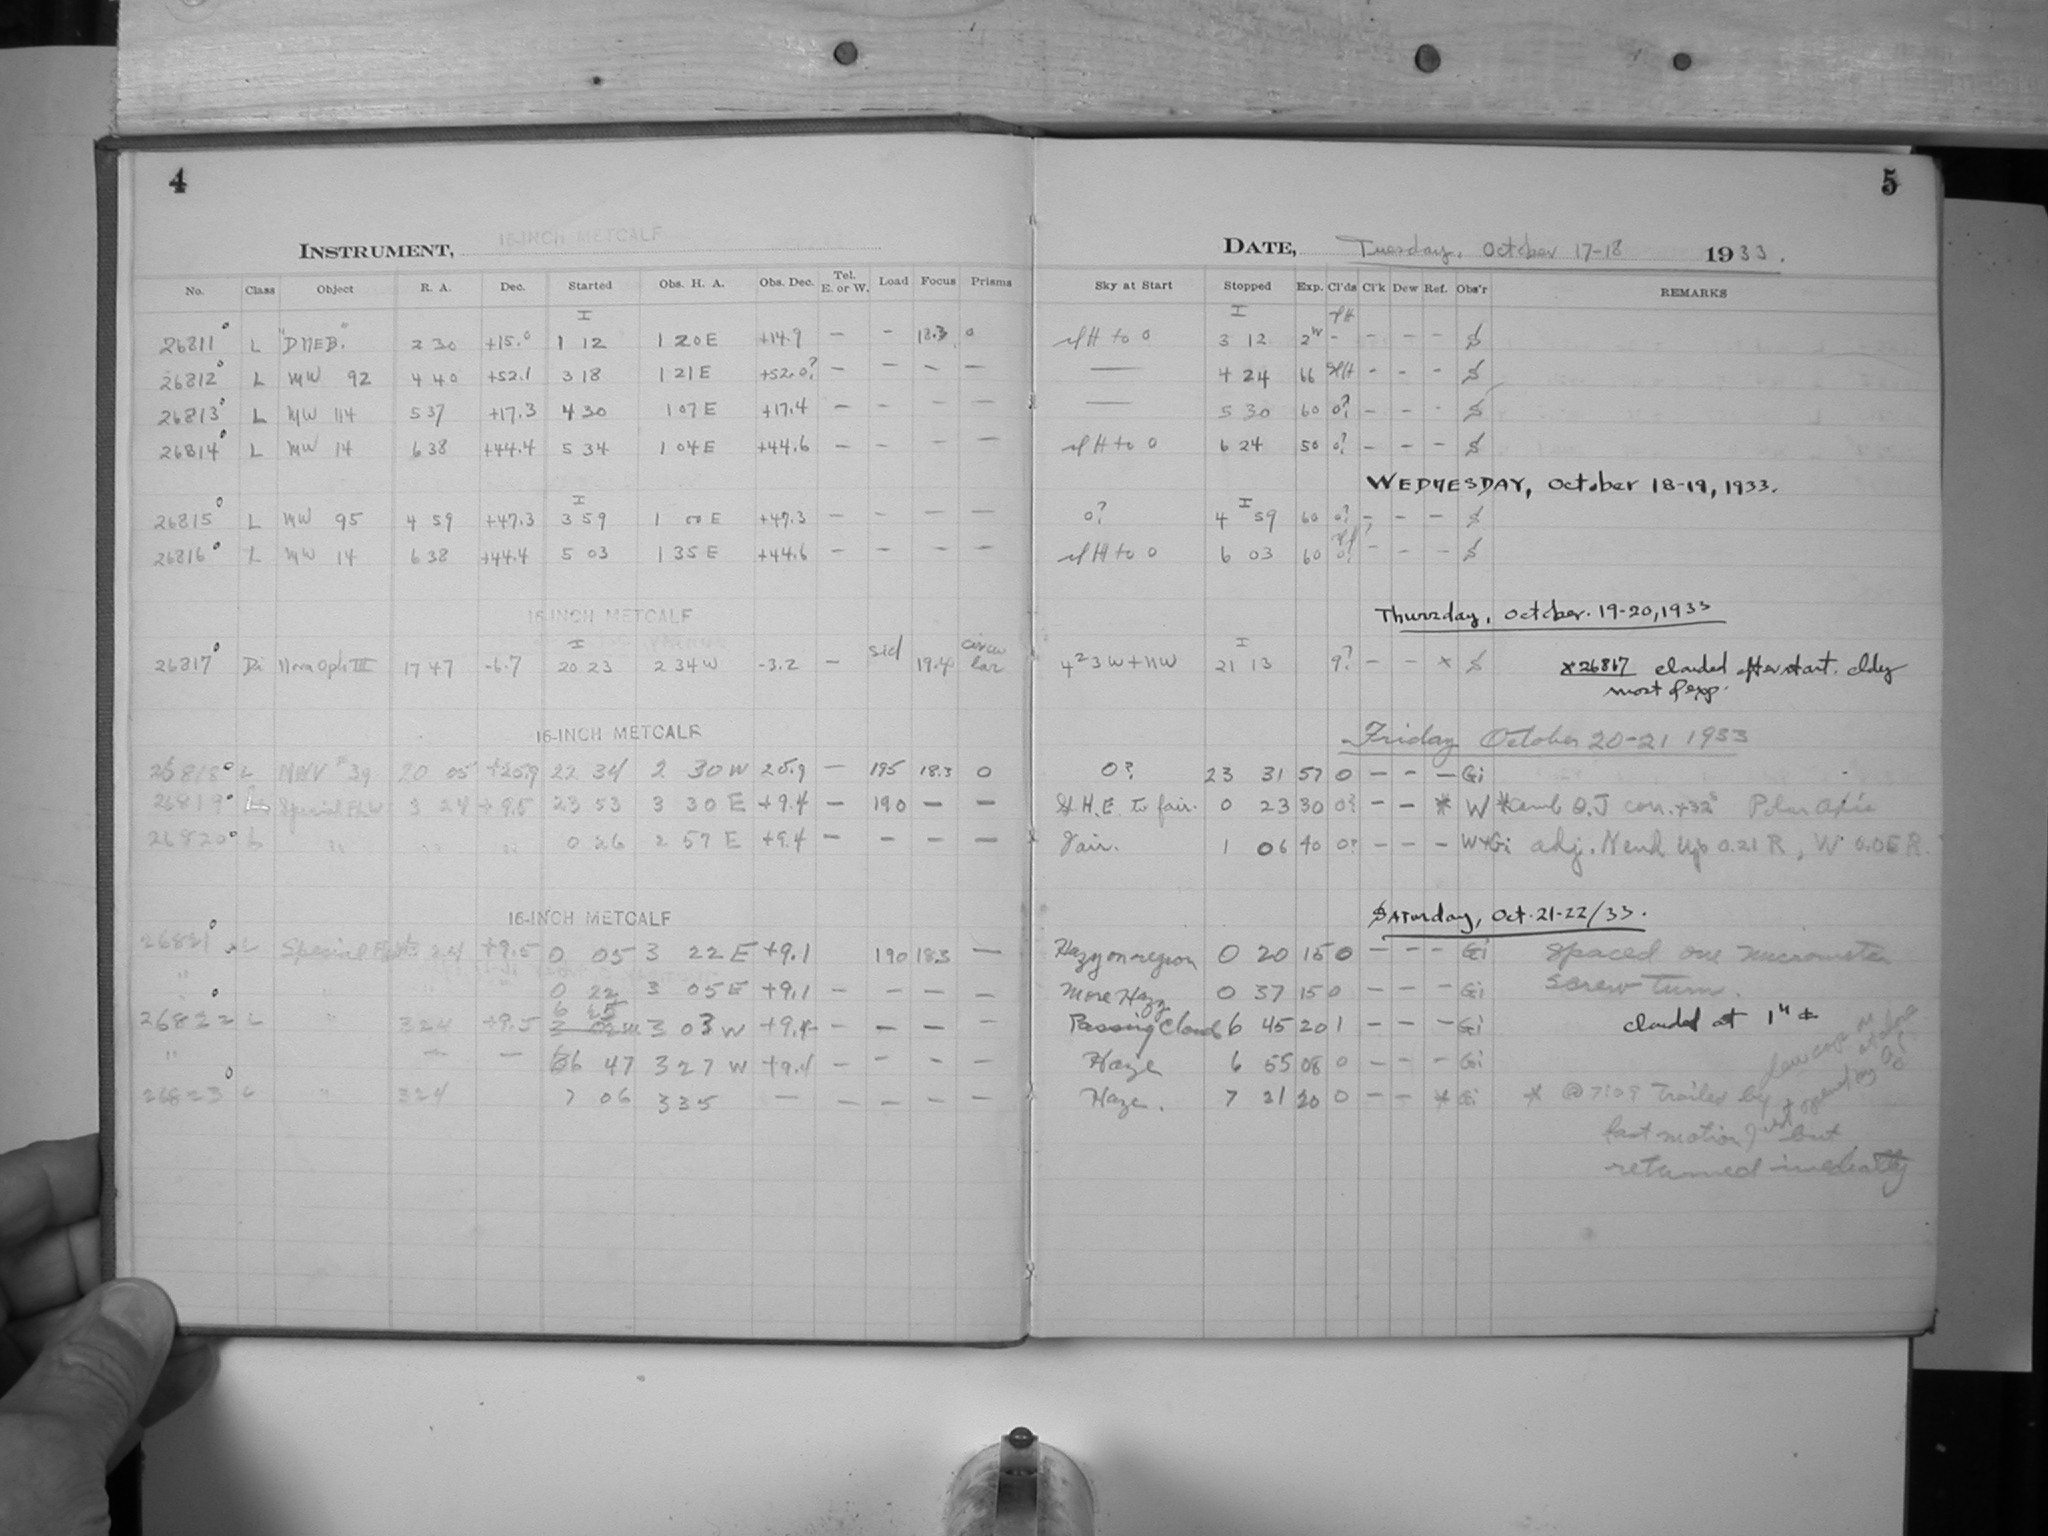 4
5
INSTRUMENT, 16-INCH METCALF
DATE, Tuesday, October 17-18 1933.
No. Class Object R. A. Dec. Started Obs. H. A. Obs. Dec. Tel. E. or W. Load Focus Prisms Sky at Start Stopped Exp. Cl'ds Cl'k Dew Ref. Obs'r REMARKS
26811 L "DNEB." 2 30 +15.0 1 12 1 20 E +14.9 — - 18.3 0 slH to 0 3 12 - - - -
26812 L MW 92 4 40 +52.1 3 18 1 21 E +52.0? — - - - — 4 24 66 slH - - -
26813 L MW 114 5 37 +17.3 4 30 1 07 E +17.4 — - - - — 5 30 60 0? - - -
26814 L MW 14 6 38 +44.4 5 34 1 04 E +44.6 — - - - slH to 0 6 24 50 0? - - -
WEDNESDAY, October 18-19, 1933.
26815 L MW 95 4 59 +47.3 3 59 1 00 E +47.3 — - - - 0? 4 59 60 0? - - -
26816 L MW 14 6 38 +44.4 5 03 1 35 E +44.6 — - - - slH to 0 6 03 60 0? - - -
16-INCH METCALF
Thursday, October. 19-20, 1933
26817 Di Nova Ophi III 17 47 -6.7 20 23 2 34 W -3.2 — sid 19.4 circular 21 13 9? - - *
*26817 clouded after start. cldy
most of exp.
16-INCH METCALF
Friday October 20-21 1933
26818 L MW #39 20 05 +25.9 22 34 2 30 W 25.9 — 195 18.3 0 0? 23 31 57 0 - - - Gi
26819 L Special Fld W 3 24 +9.5 23 53 3 30 E +9.4 — 190 - - Sl H.E. to fair. 0 23 30 0? - - * W Polar Axis
26820 L " " " 0 26 2 57 E +9.4 — - - - Fair. 1 06 40 0? - - - W+Gi adj. N end Up 0.21 R, W 0.05 R.
16-INCH METCALF
Saturday, Oct. 21-22/33.
26821 L Special 3 24 +9.5 0 05 3 22 E +9.1 190 18.3 — Hazy on region 0 20 15 0 - - - Gi Spaced one micrometer
" " 0 22 3 05 E +9.1 - - - - More Hazy 0 37 15 0 - - - Gi screw turn.
26822 L " 3 24 +9.5 6 25 3 03 W +9.4 - - - - Passing Clouds 6 45 20 1 - - - Gi clouded at 1h ±
" - - 6 47 3 27 W +9.4 - - - - Haze 6 55 08 0 - - - Gi
26823 L " 3 24 7 06 3 35 - - - - - Haze. 7 21 20 0 - - * Gi * @ 7:09 Trailed by
fast motion, but
returned imediatly